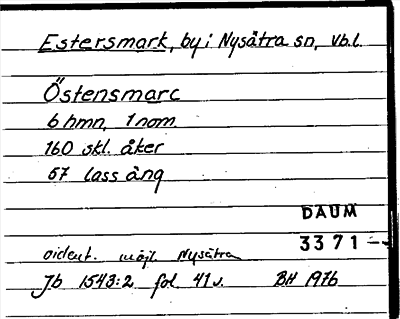 Estersmark, by i Nysätra sn, Vb.l.
Östensmarc
6 hmn, 1 nom.
160 skl. åker
67 lass äng
DAUM
3371
oident. möjl. Nysätra
Jb 1543:2 fol. 41v. BH 1976